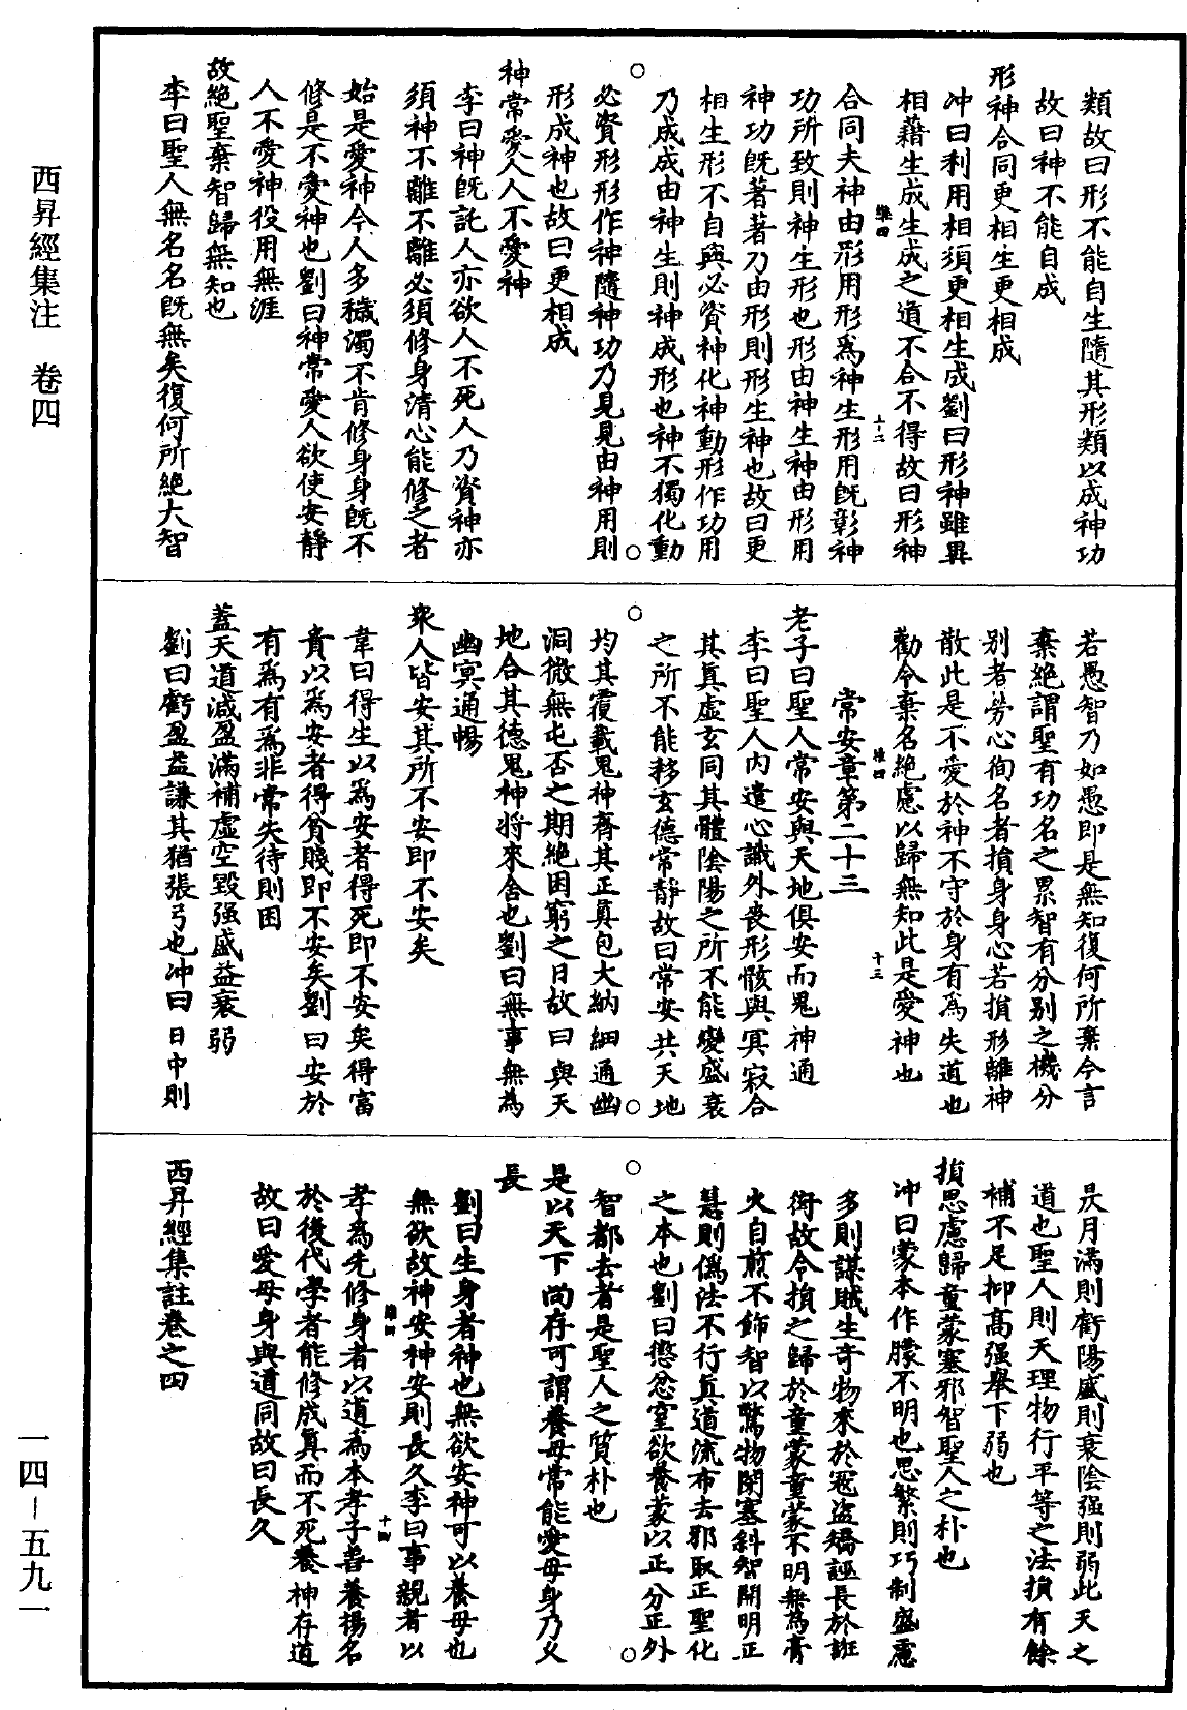 類故曰形不能自生隨其形類以成神功
故曰神不能自成
形神合同更相生更相成
冲曰利用相須更相生成劉曰形神雖異
相藉生成生成之道不合不得故曰形神
維四
十二
合同夫神由形用形爲神生形用旣彰神
功所致則神生形也形由神生神由形用
神功旣著著乃由形則形生神也故曰更
相生形不自興必資神化神動形作功用
乃成成由神生則神成形也神不獨化動
必資形形作神隨神功乃見見由神用則
形成神也故曰更相成
神常愛人人不愛神
李曰神旣託人亦欲人不死人乃資神亦
須神不離不離必須修身清心能修之者
始是愛神今人多穢濁不肯修身身旣不
修是不愛神也劉曰神常愛人欲使安靜
人不愛神役用無涯
故絶聖棄智歸無知也
李曰聖人無名名旣無矣復何所絶大智
若愚智乃如愚即是無知復何所棄今言
棄絶謂聖有功名之累智有分别之機分
别者勞心徇名者損身身心若損形離神
散此是不愛於神不守於身有爲失道也
勸令棄名絶慮以歸無知此是愛神也
維四
十三
常安章第二十三
老子曰聖人常安與天地俱安而鬼神通
李曰聖人内遣心識外喪形骸與冥寂合
其真虚玄同其體陰陽之所不能變盛衰
之所不能移玄德常靜故曰常安共天地
均其覆載鬼神齊其正真包大納細通幽
洞微無屯否之期絶困窮之日故曰與天
地合其德鬼神將來舍也劉曰無事無爲
幽冥通暢
衆人皆安其所不安即不安矣
韋曰得生以爲安者得死即不安矣得富
貴以爲安者得貧賤即不安矣劉曰安於
有爲有爲非常失待則困
蓋天道減盈滿補虚空毁强盛益衰弱
劉曰虧盈益謙其猶張弓也冲曰日中則
昃月滿則虧陽盛則衰陰强則弱此天之
道也聖人則天理物行平等之法損有餘
補不足抑高强舉下弱也
損思慮歸童蒙塞邪智聖人之朴也
冲曰蒙本作朦不明也思繁則巧制盛慮
多則謀賊生奇物來於寇盗矯誣長於誑
衒故令損之歸於童蒙童蒙不明無爲膏
火自煎不飾智以驚物閉塞斜智開明正
慧則僞法不行真道流布去邪取正聖化
之本也劉曰懲忿窒欲養蒙以正分正外
智都去者是聖人之質朴也
是以天下尚存可謂養母常能愛母身乃乆
長
劉曰生身者神也無欲安神可以養母也
無欲故神安神安則長久李曰事親者以
維四
十四
孝爲先修身者以道爲本孝子善養揚名
於後代學者能修成真而不死養神存道
故曰愛母身與道同故曰長久
西昇經集註卷之四
西昇經集注　卷四
一四－五九一